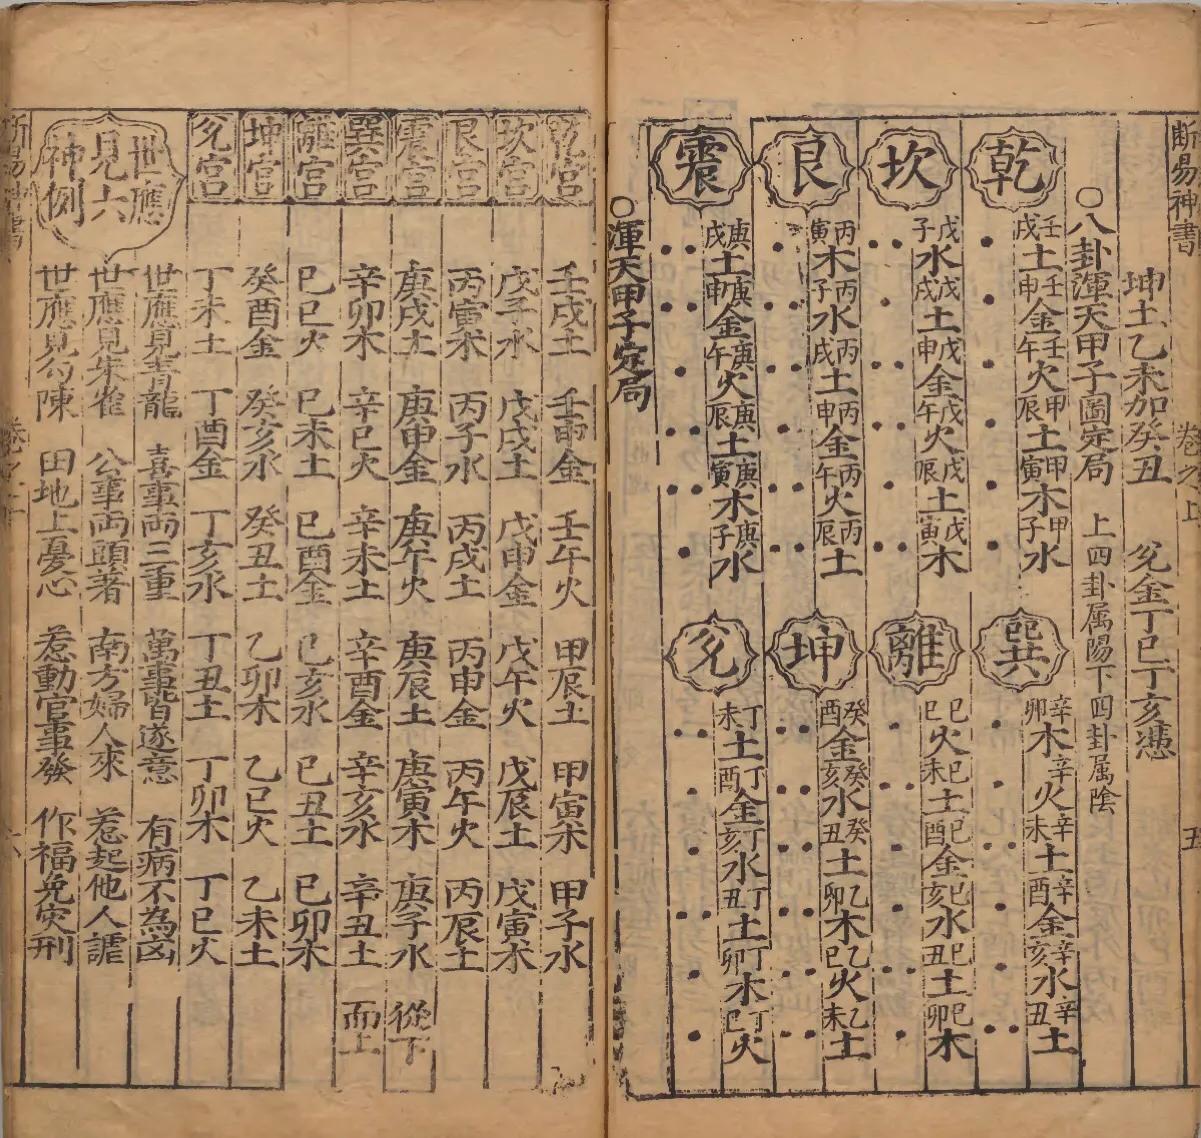 断易神書 卷之上 五
坤土乙未加癸丑 兊金丁巳丁亥憑
○八卦渾天甲子圖定局 上四卦属陽下四卦属陰
乾 壬戌土壬申金壬午火甲辰土甲寅木甲子水
巽 辛卯木辛火辛未土辛酉金辛亥水辛丑土
坎 戊子水戊戌土戊申金戊午火戊辰土戊寅木
離 巳巳火巳未土巳酉金巳亥水巳丑土巳卯木
艮 丙寅木丙子水丙戌土丙申金丙午火丙辰土
坤 癸酉金癸亥水癸丑土乙卯木乙巳火乙未土
震 庚戌土庚申金庚午火庚辰土庚寅木庚子水
兊 丁未土丁酉金丁亥水丁丑土丁卯木丁巳火
○渾天甲子定局
乾宫 壬戌土 壬申金 壬午火 甲辰土 甲寅木 甲子水
坎宫 戊子水 戊戌土 戊申金 戊午火 戊辰土 戊寅木
艮宫 丙寅木 丙子水 丙戌土 丙申金 丙午火 丙辰土
震宫 庚戌土 庚申金 庚午火 庚辰土 庚寅木 庚子水 從下
巽宫 辛卯木 辛巳火 辛未土 辛酉金 辛亥水 辛丑土 而上
離宫 巳巳火 巳未土 巳酉金 巳亥水 巳丑土 巳卯木
坤宫 癸酉金 癸亥水 癸丑土 乙卯木 乙巳火 乙未土
兊宫 丁未土 丁酉金 丁亥水 丁丑土 丁卯木 丁巳火
世應見六神例
世應見青龍 喜事両三重 萬事皆遂意 有病不為凶
世應見朱雀 公事両頭著 南方婦人來 惹起他人謔
世應見勾陳 田地上憂心 惹動官事發 作福免災刑